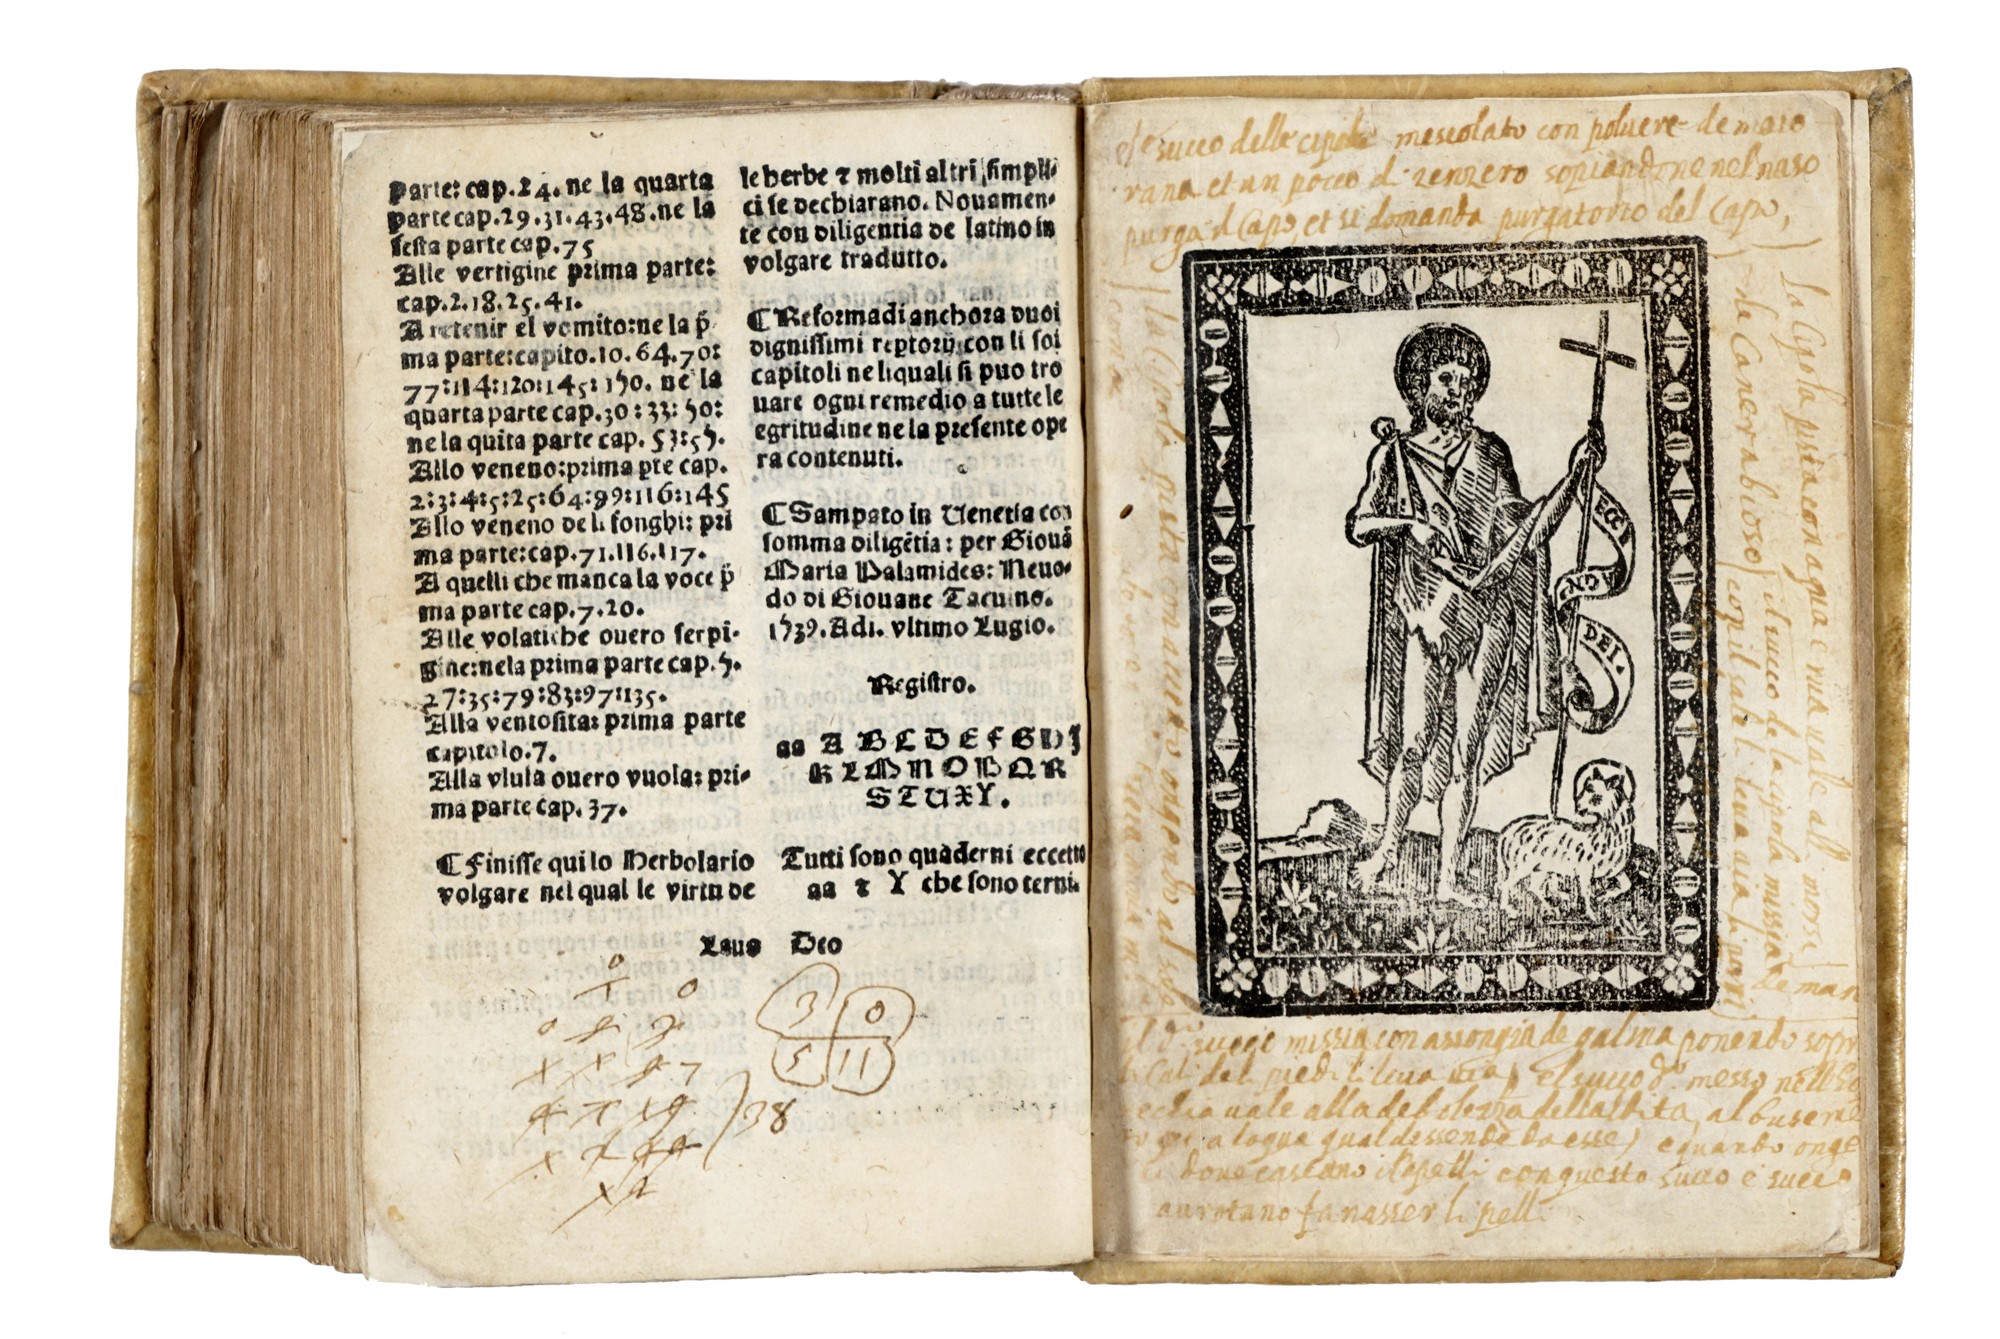 Parte: cap.24. ne la quarta
parte cap.29.31.43.48.ne la
sesta parte cap.75
Alle vertigine prima parte:
cap.2.18.25.41.
A retenir el vomito:ne la p̄
ma parte:capito.10.64.70:
77:114:120:145:150. ne la
quarta parte cap.30:33:50:
ne la quita parte cap. 53:55.
Allo veneno:prima pte cap.
2:3:4:5:25:64:99:116:145
Allo veneno de li fonghi: pri
ma parte:cap.71.116.117.
A quelli che manca la voce p̄
ma parte cap.7.20.
Alle volatiche ouero serpi-
gine:nela prima parte cap.5.
27:35:79:83:97:135.
Alla ventosita: prima parte
capitolo.7.
Alla vlula ouero vuola: pri-
ma parte cap. 37.
¶ Finisse qui lo Herbolario
volgare nel qual le virtu de
le herbe ⁊ molti altri simpli-
ci se dechiarano. Nouamen-
te con diligentia de latino in
volgare tradutto.
¶ Reformadi anchora duoi
dignissimi reptorij con li soi
capitoli ne li quali si puo tro
uare ogni remedio a tutte le
egritudine ne la presente ope
ra contenuti.
¶ Stampato in Uenetia con
somma diligētia: per Giouā
Maria Palamides: Neuo-
do di Giouane Tacuino.
1539. Adi. vltimo Lugio.
Registro.
aa A B C D E F G H I
K L M N O P Q R
S T U X Y.
Tutti sono quaderni eccetto
aa ⁊ Y che sono terni.
Laus Deo
3 0
5 11
38
succo delle cipole mescolato con poluere de maio
rana et un pocco di zenzero sopiandone nel naso
purga il Capo, et si domanda purgatorio del Capo,
La Cipola pista con aqua e ruta uale alli morsi
de Cane rabioso
il succo de la cipola missia de man
con il sale li leua uia li porri
La Cipola pista con aceto ongendo al sole
succo missia con assongia de galina ponendo sopra
Cali de li piedi li leua uia, el succo do messo nelle
echia uale alla debolezza dell
a laqua qual dessende da esse, e quando onge
doue cascano i capelli con questo succo e succo
fa nasser li peli
ECCE
AGN
DEI.